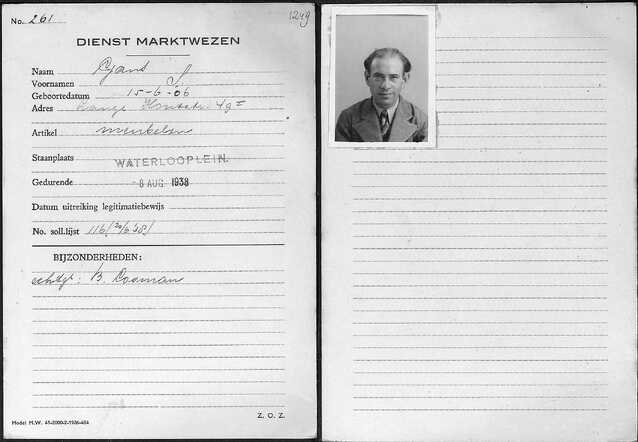 No. 261
1249
DIENST MARKTWEZEN
Naam Gans
Voornamen S
Geboortedatum 15-6-06
Adres Lange Houtstr 49
Artikel meubelen
Staanplaats WATERLOOPLEIN.
Gedurende -8 AUG 1938
Datum uitreiking legitimatiebewijs
No. soll.lijst 116/
BIJZONDERHEDEN:
echtgt: B. Cosman
Model M.W. 41-2000-2-1936-404
Z. O. Z.